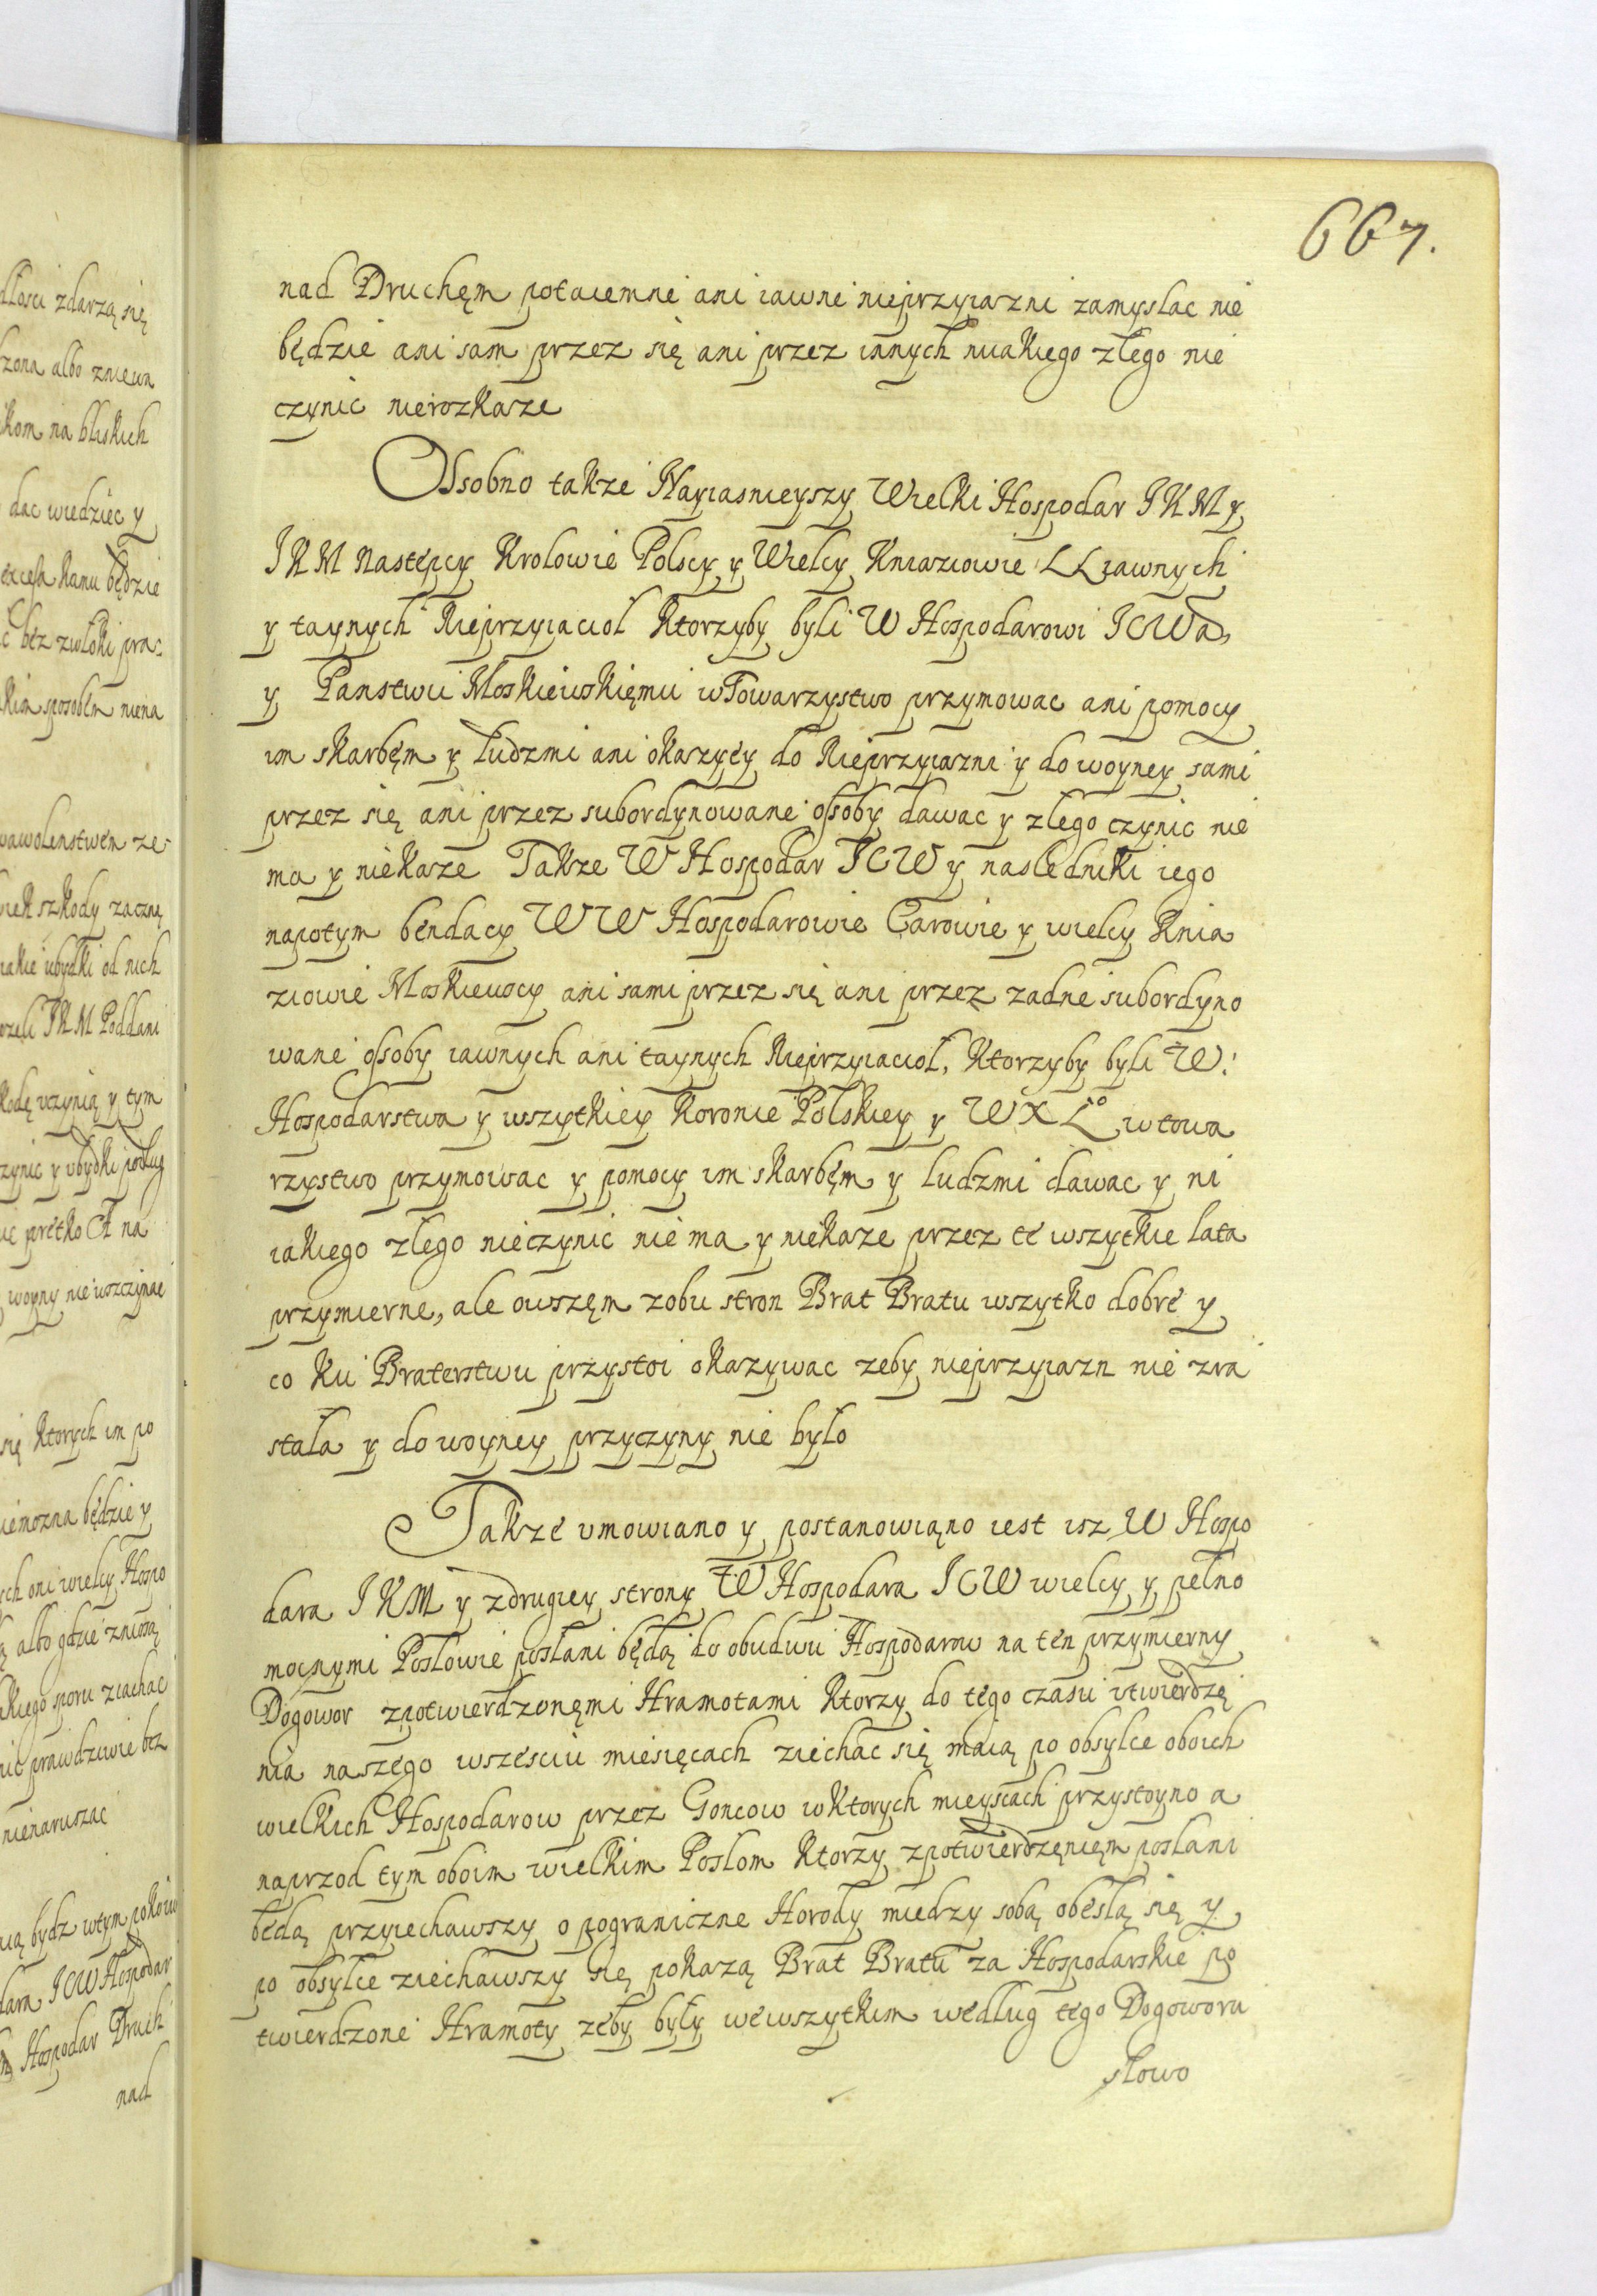 667.
nad Druchęm potaiemne ani iawne nieprzyiazni zamyslac nie
będzie ani sam przez się ani przez innych niiakiego złego nie
czynic nierozkaze
Ossobno takze Nayiasnieyszy Wielki Hospodar JKM y
JKM Nastepcy Krolowie Polscy y Wielcy Kniaziowie LL iawnych
y taynych Nieprzyiaciol Ktorzyby byli W Hospodarowi JCWa
y Panstwu Moskiewskięmu w Towarzystwo przymowac ani pomocy
im skarbęm y ludzmi ani okazyey do Nieprzyiazni y do woyney sami
przez się ani przez subordynowane ossoby dawac y zlego czynic nie
ma y niekaze Takze W Hospodar JCW y nasledniki iego
napotym bendacy WW Hospodarowie Carowie y wielcy Knia
ziowie Moskiewscy ani sami przez się ani przez zadne subordyno
wane ossoby iawnych ani taynych Nieprzyiaciol, Ktorzyby byli W:
Hospodarstwa y wszytkiey Koronie Polskiey y WXLo w towa
rzystwo przymowac y pomocy im skarbęm y ludzmi dawac y ni
iakiego zlego nieczynic nie ma y niekaze przez te wszytkie lata
przymierne, ale owszęm zobu stron Brat Bratu wszytko dobre y
co ku Braterstwu przystoi okazywac zeby nieprzyiazn nie zra
stala y do woyney przyczyny nie bylo
Takze vmowiano y postanowiąno iest isz W Hospo
dara JKM y zdrugiey strony W Hospodara JCW wielcy y pelno
mocnymi Poslowie poslani będą do obudwu Hospodarow na ten przymierny
Dogowor zpotwierdzonęmi Hramotami Ktorzy do tego czasu vtwierdzę
nia naszego wszesciu miesięcach ziechac się maią po obsylce oboich
wielkich Hospodarow przez Goncow wktorych mieyscach przystoyno a
naprzod tym oboim wielkim Poslom Ktorzy zpotwierdzęnięm poslani
będą przyiechawszy o pograniczne Horody miedzy sobą obeslą się y
po obsylce ziechawszy się pokazą Brat Bratu za Hospodarskie po
twierdzone Hramoty zeby były wewszytkim według tego Dogoworu
słowo
dłosci zdarzą się
kom na bliskich
dac wiedziec y
będzie
bez zwłoki pra:
sposobęm niena
szkody zaczną
od nich
JKM Poddani
vczynią y tym
czynic y vbydki podług
prętko A na
woyny nie wszczynac
się Ktorych im po
będzie y
oni wielcy Hospo
albo gdzie zniosą
sporu ziachac
prawdziwie bez
nienaruszac
bydz wtym pokoiu
JCW Hospodar
Hospodar Druch
nad